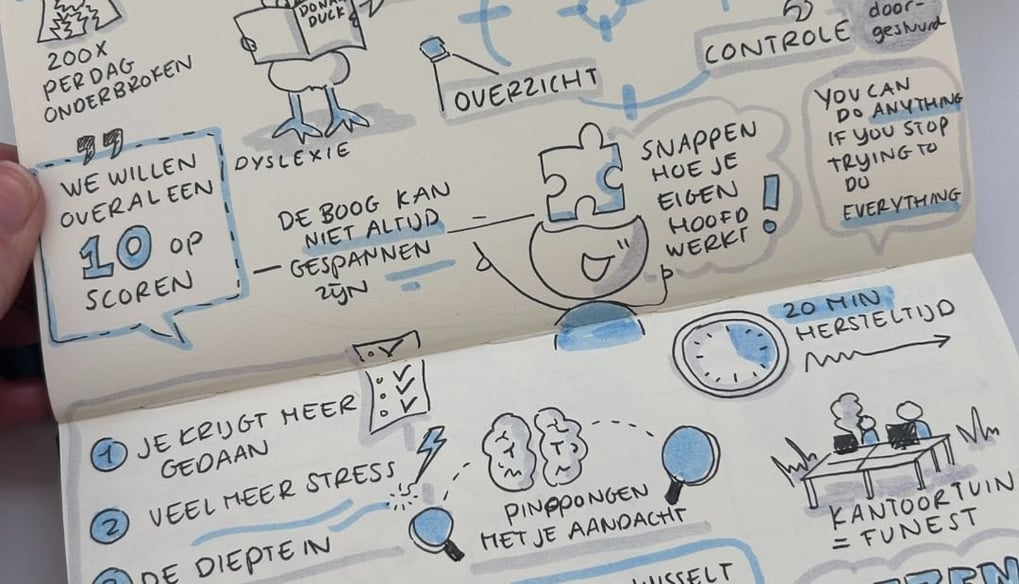 200X
PER DAG
ONDERBROKEN
DONALD
DUCK
DYSLEXIE
OVERZICHT
CONTROLE
door-
gestuurd
YOU CAN
DO ANYTHING
IF YOU STOP
TRYING TO
DO
EVERYTHING
"
WE WILLEN
OVERAL EEN
10 OP
SCOREN
DE BOOG KAN
NIET ALTIJD
GESPANNEN
ZIJN
SNAPPEN
HOE JE
EIGEN
HOOFD
WERKT!
20 MIN
HERSTELTIJD
1 JE KRIJGT MEER
GEDAAN
2 VEEL MEER STRESS
DE DIEPTE IN
PINGPONGEN
MET JE AANDACHT
KANTOORTUIN
= FUNEST